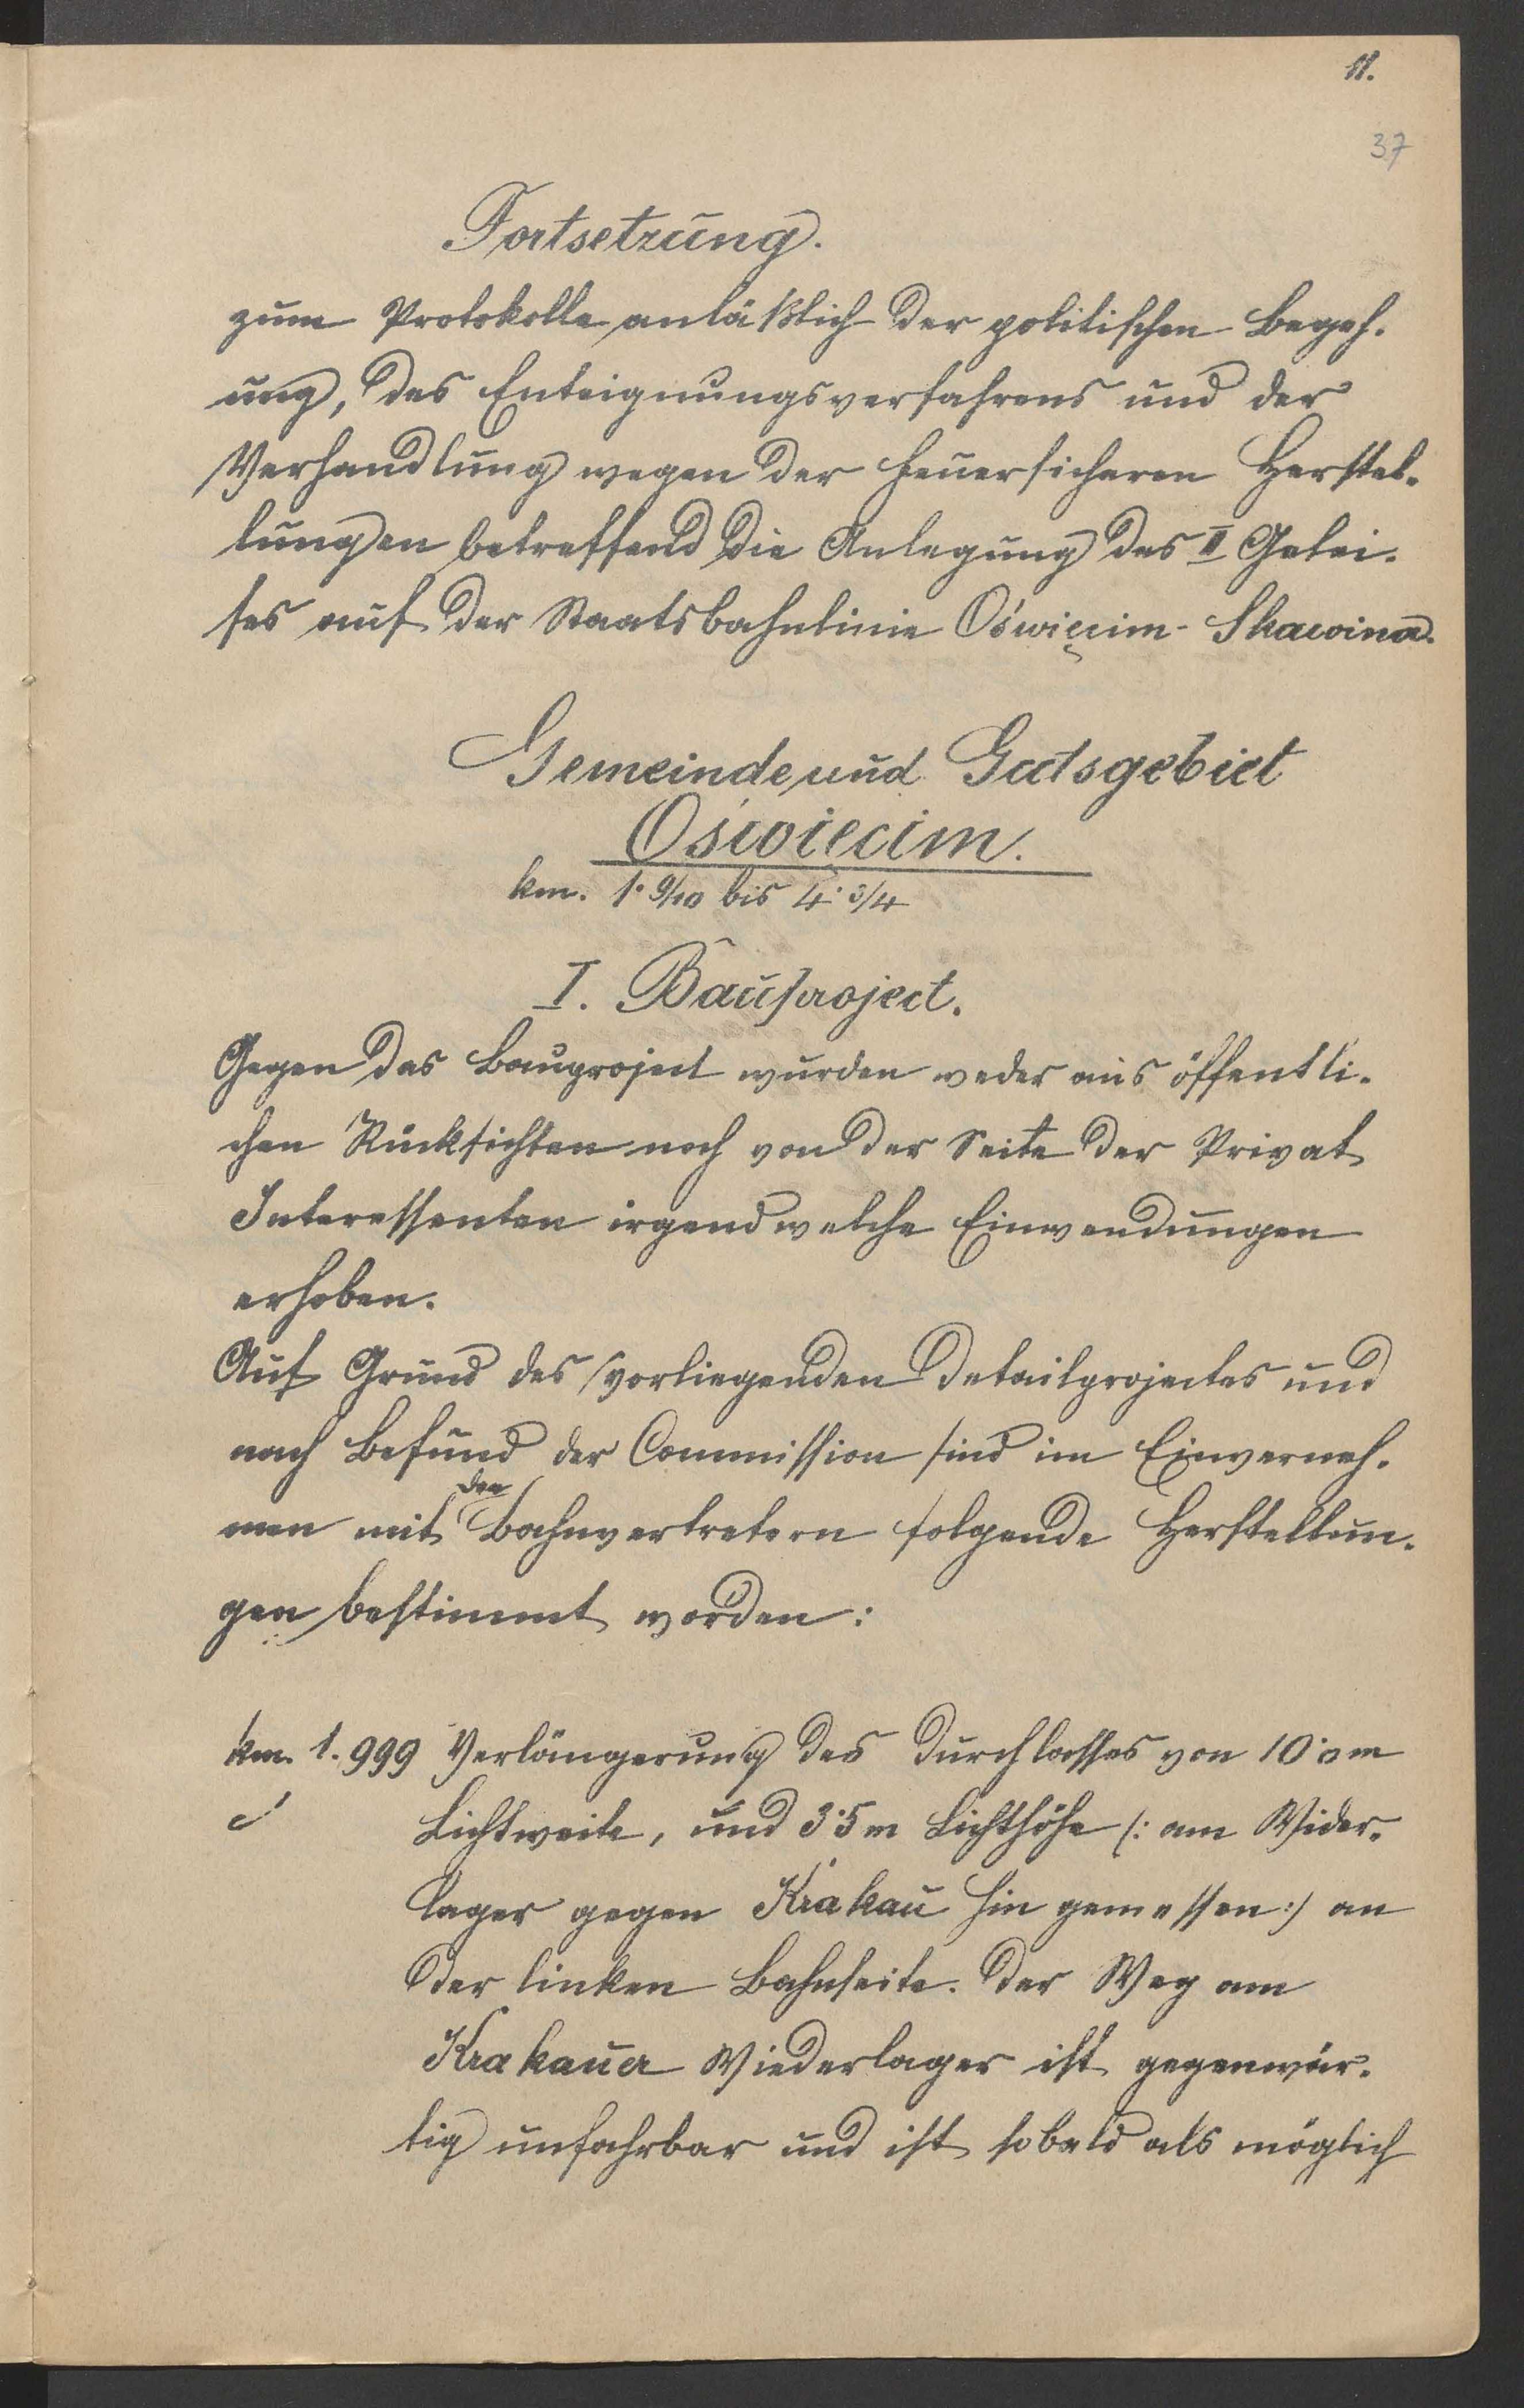 11.
37
Fortsetzung.
zum Protokolle anläßlich der politischen Begeh-
ung, des Enteignungsverfahrens und der
Verhandlung wegen der feuersicheren Herstel-
lungen betreffend die Anlegung des II Gelei-
ses auf der Staatsbahnlinie Oświęcim-Skawina.
Gemeinde und Gutsgebiet
Oświęcim.
km. 1·9/10 bis 4·3/4
I. Bauproject.
Gegen das Bauproject wurden weder aus öffentli-
chen Rücksichten noch von der Seite der Privat
Interessenten irgendwelche Einwendungen
erhoben.
Auf Grund des vorliegenden Detailprojectes und
nach Befund der Commission sind im Einverneh-
men mit den Bahnvertretern folgende Herstellun-
gen bestimmt worden:
km. 1.999 Verlängerung des Durchlasses von 10·0m
Lichtweite, und 3·5m Lichthöhe (: am Wider-
lager gegen Krakau hin gemessen :) an
der linken Bahnseite. Der Weg am
Krakauer Wiederlager ist gegenwär-
tig unfahrbar und ist sobald als möglich